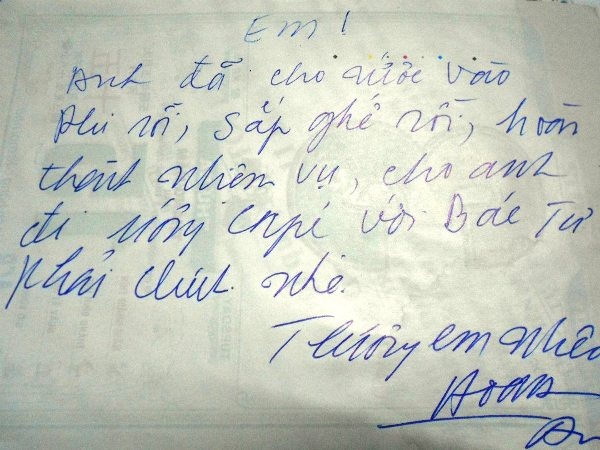 Em!
Anh đã cho nước vào
phi rồi, sắp ghế rồi, hoàn
thành nhiệm vụ, cho anh
đi uống Café với Bác Tư
phải chút nhé.
Thương em nhiều